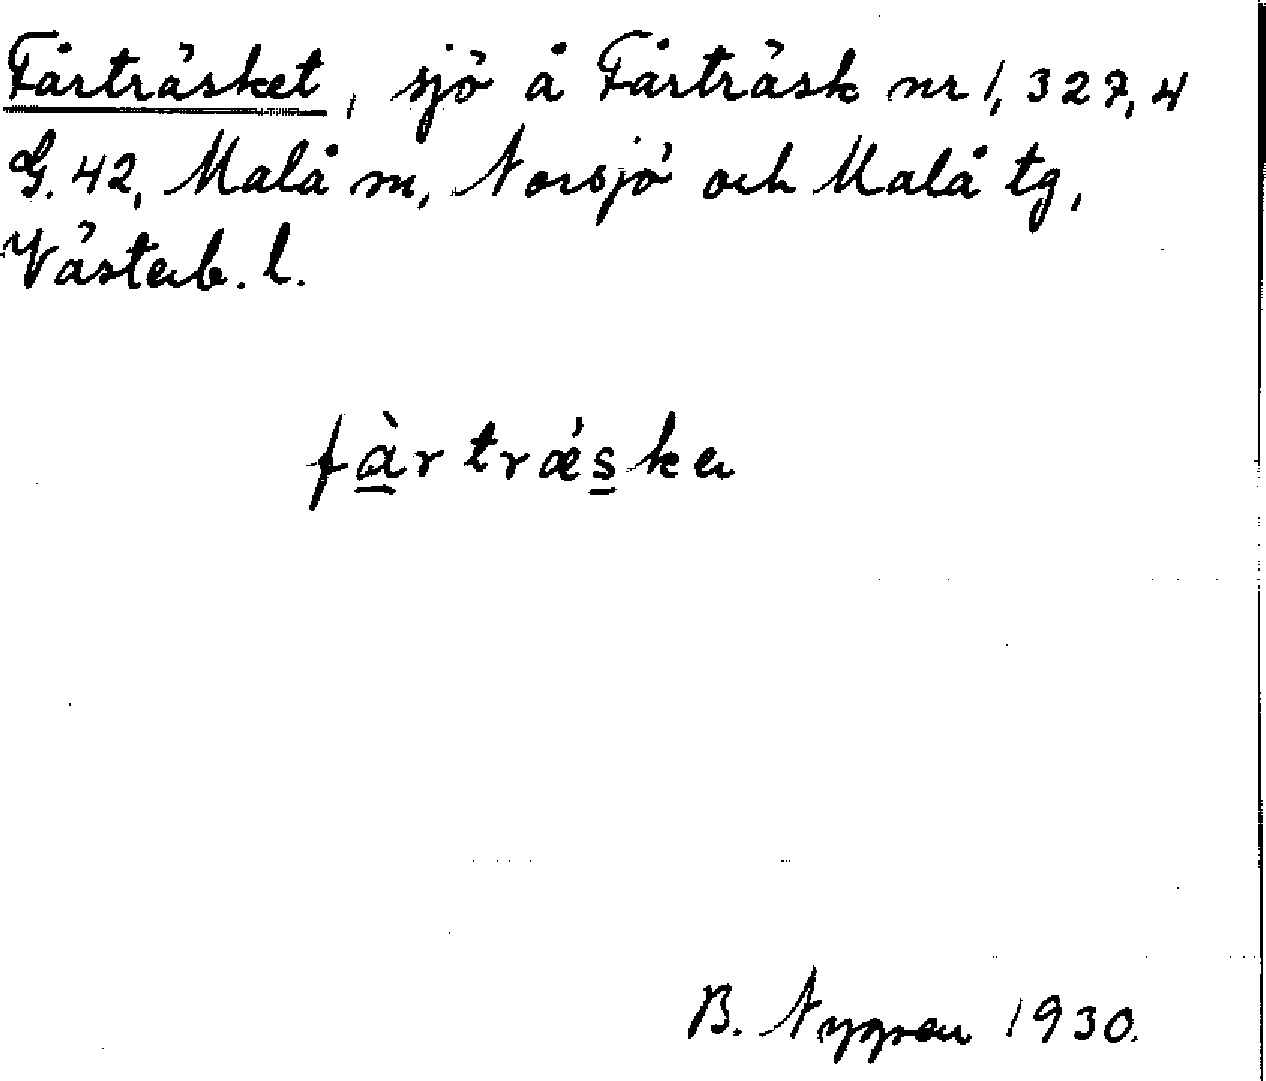 Fårträsket, sjö å Fårträsk nr 1, 327, 4
G. 42, Malå sn, Norsjö och Malå tg,
Västerb. l.
fàrtrǽska
B. Nygren 1930.